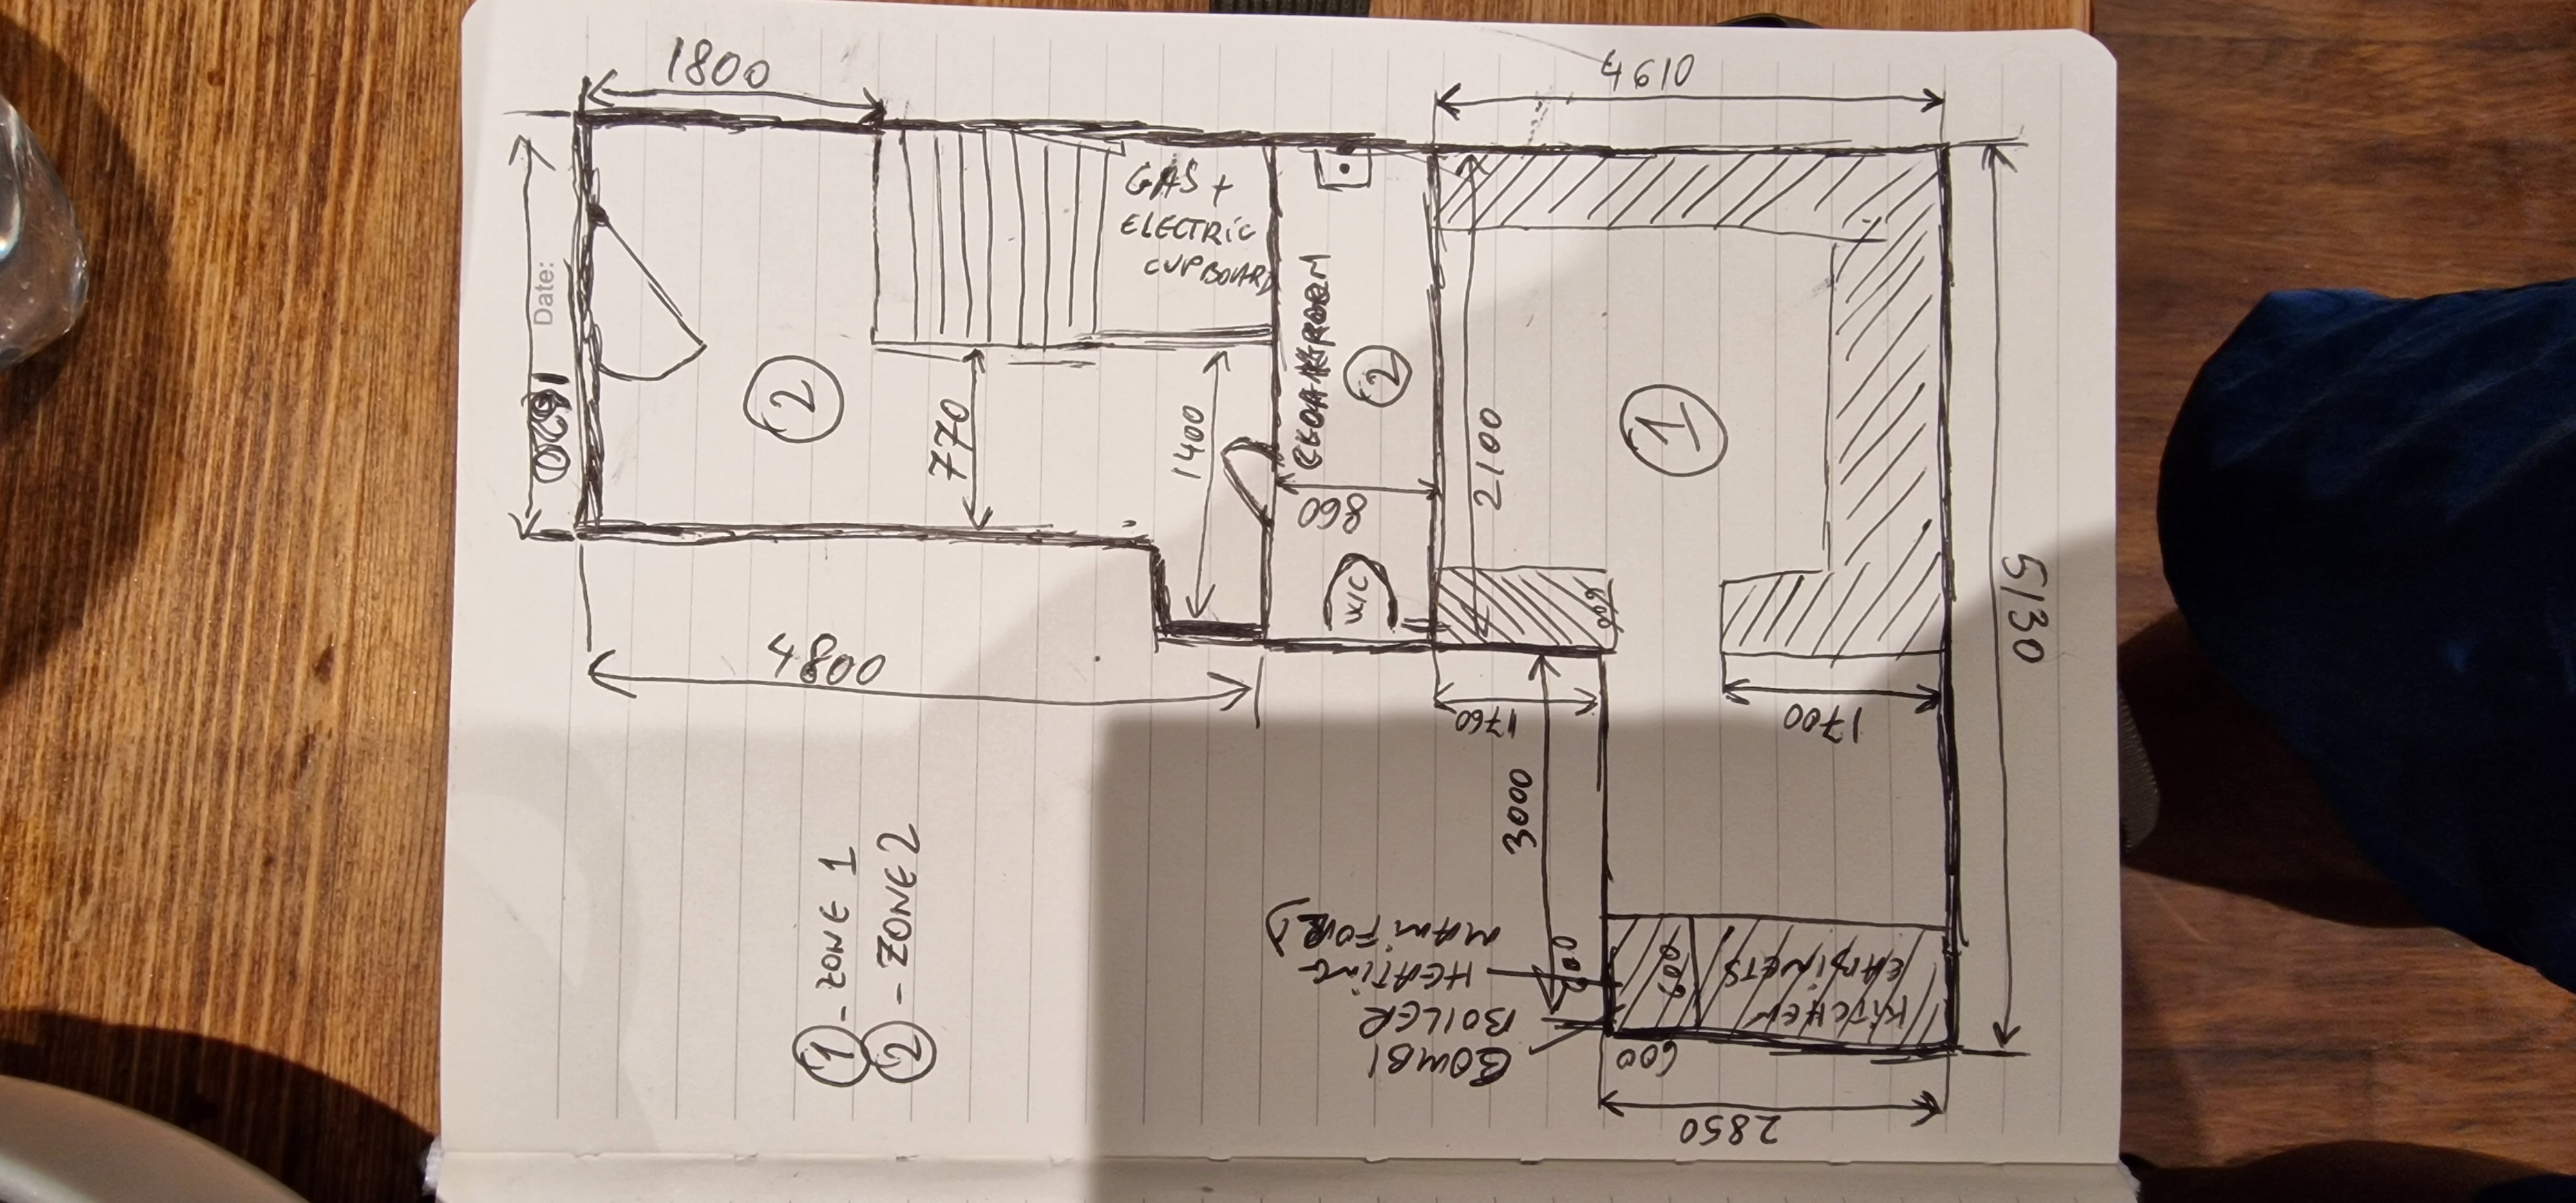 1800
4610
Date:
1620
GAS +
ELECTRIC
CUPBOARD
2
770
1400
2
860
W/C
2100
1
600
4800
1760
1700
3000
5130
1 - ZONE 1
2 - ZONE 2
COMBI
BOILER
HEATING
MANIFOLD
600
600
KITCHEN
CABINETS
600
2850